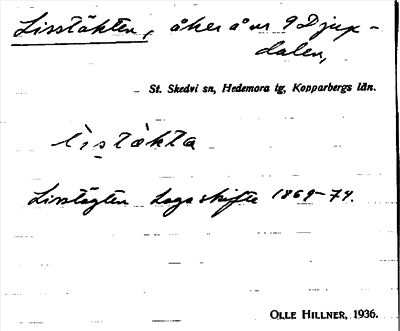 Lisstäkten, åker å nr 9 Djup-
dalen,
St. Skedvi sn, Hedemora tg, Kopparbergs län.
lìstàkta
Lisstägten Laga skifte 1869-74.
OLLE HILLNER, 1936.